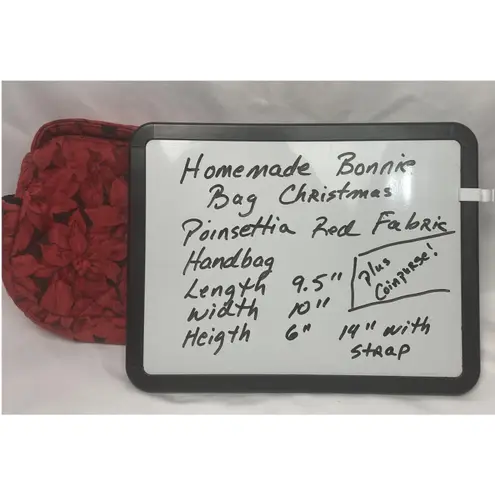 Homemade Bonnie
Bag Christmas
Poinsettia Red Fabric
Handbag
Length 9.5"
Width 10"
Heigth 6" 14" with
strap
plus
Coinpurse!